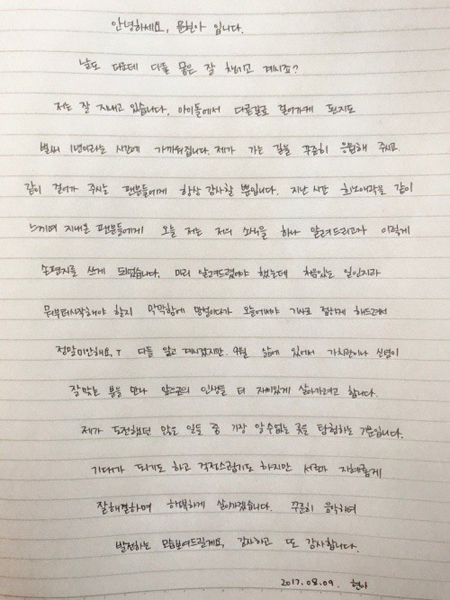 안녕하세요, 문현아 입니다.
날도 더운데 다들 몸은 잘 챙기고 계시죠?
저는 잘 지내고 있습니다, 아이돌에서 다른길로 걸어가게 된지도
벌써 1년이라는 시간에 가까워집니다. 제가 가는 길을 꾸준히 응원해 주시고
같이 걸어가 주시는 팬분들에게 항상 감사할 뿐입니다. 지난 시간 희노애락을 같이
느끼며 지내온 팬분들에게 오늘 저는 저의 소식을 하나 알려드리고자 이렇게
손편지를 쓰게 되었습니다. 미리 알려드렸어야 했는데 처음있는 일인지라
뭐부터시작해야 할지 막막함에 망설이다가 오늘에서야 기사로 접하게 해드려서
정말미안해요, ㅜ 다들 알고 계시겠지만, 9월 삶에 있어서 가치관이나 신념이
잘맞는 분을 만나 앞으로의 인생을 더 재미있게 살아가려고 합니다.
제가 도전했던 많은 일들 중 가장 알수없는 곳을 탐험하는 기분입니다.
기대가 되기도 하고 걱정스럽기도 하지만 서로 지혜롭게
잘해결하며 행복하게 살아가겠습니다. 꾸준히 음악하며
발전하는 모습보여드릴게요, 감사하고 또 감사합니다.
2017.08.09. 현아